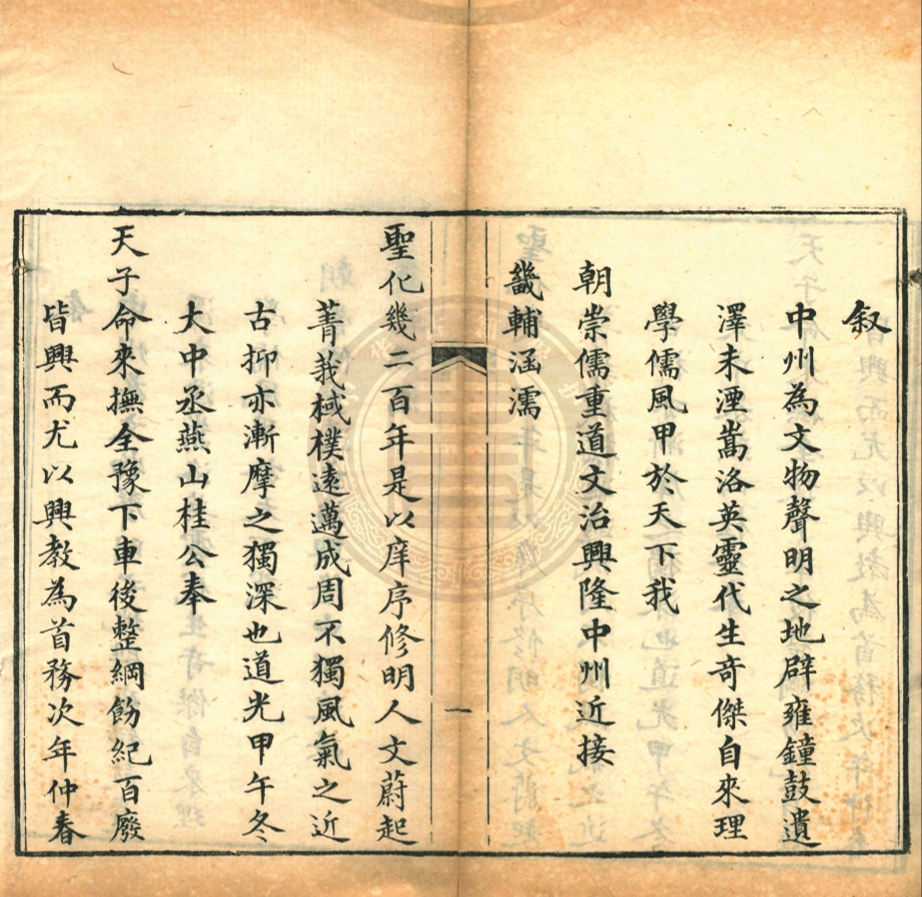 叙
中州為文物聲明之地辟雍鐘鼓遺
澤未湮嵩洛英靈代生奇傑自來理
學儒風甲於天下我
朝崇儒重道文治興隆中州近接
畿輔涵濡
一
聖化幾二百年是以庠序修明人文蔚起
菁莪棫樸遠邁成周不獨風氣之近
古抑亦漸摩之獨深也道光甲午冬
大中丞燕山桂公奉
天子命來撫全豫下車後整綱飭紀百廢
皆興而尤以興教為首務次年仲春